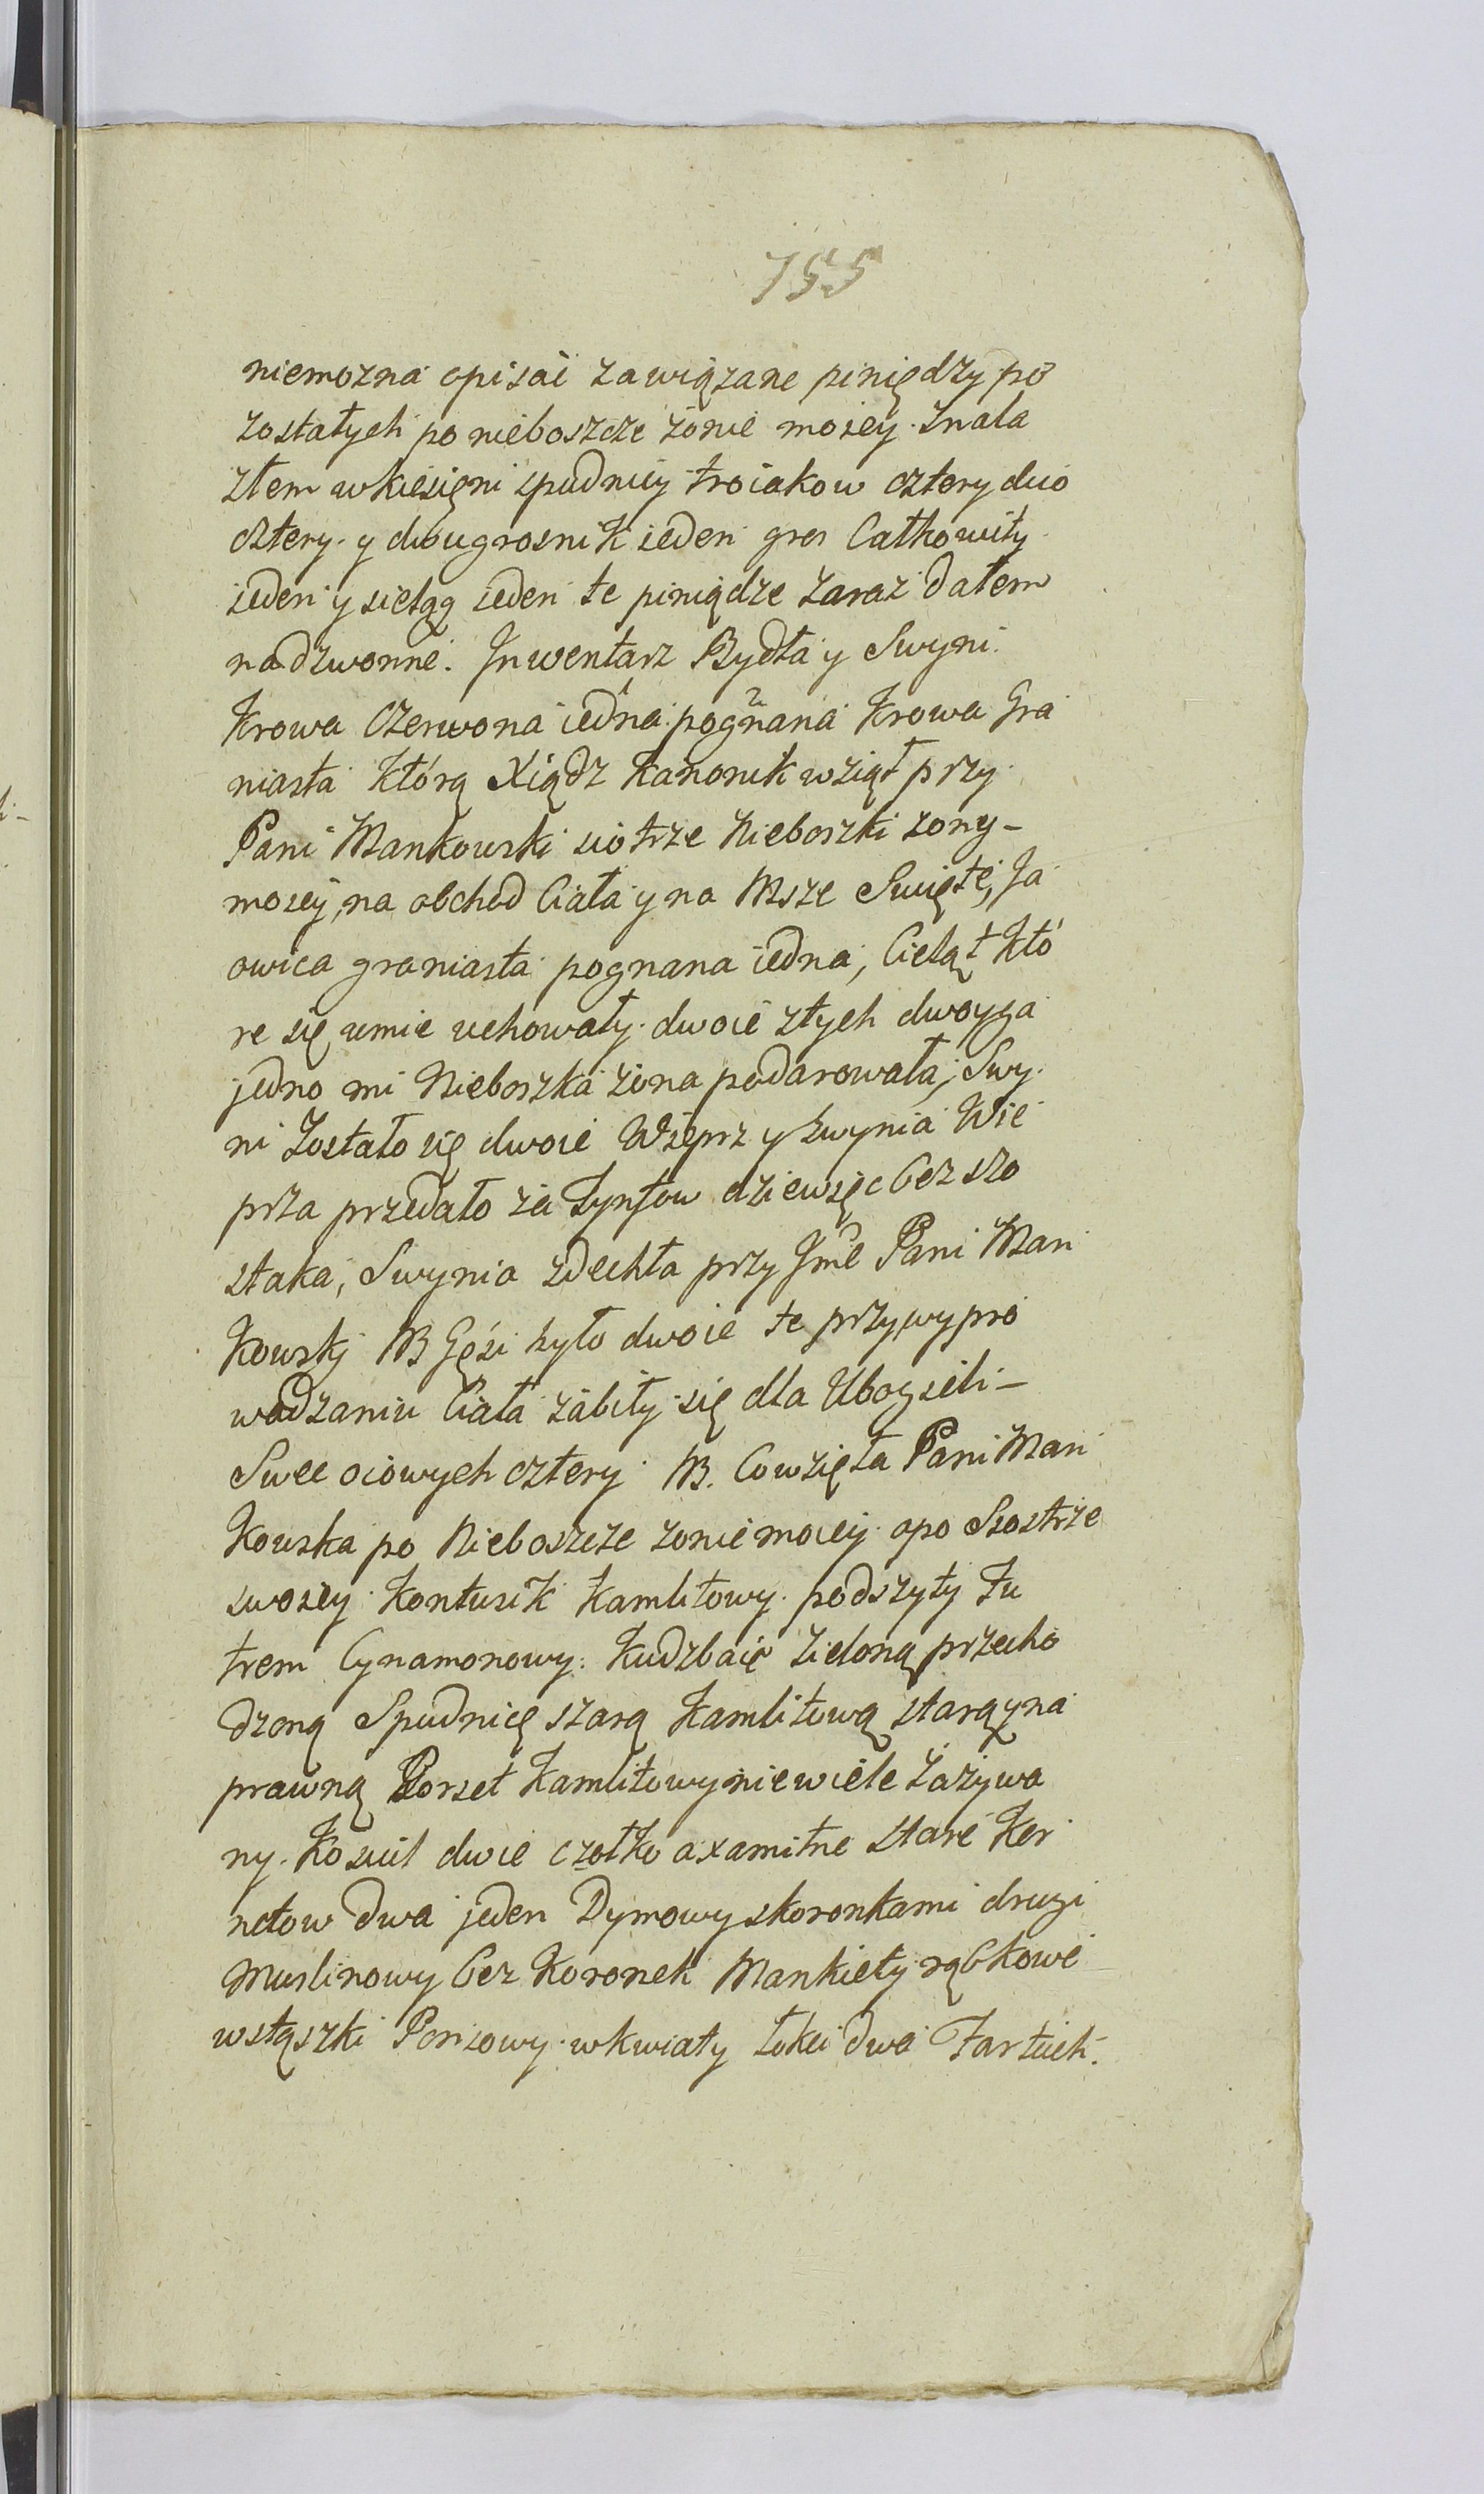 755
niemozna opisać zawiązane piniędzy po
zostałych po nieboszcze żonie moiey. Znala
złem w kiesięni spudnicy troiakow cztery duo
cztery. y dwugrosnik ieden gros Całkowity
ieden y sieląg ieden te piniądze zaraz dałem
na dzwonne. Jnwentarz Bydła y Swyni.
Krowa Czerwona iedna pognana Krowa Gra
niasta Którą Xiądz Kanonik wziął przy
Pani Mankowski siotrze Nieboszki zony-
moiey, na obchod Ciała y na Msze Swięte, Ja
owica graniasta pognana iedna, Cieląt Któ
re się umie uchowały. dwoie złych dwoyga
jedno mi Nieboszka żona podarowała, Swy
ni Zostało się dwoie Wieprz y Swynia Wie
prza przedało za Tynfow dziewsięc bez szo
staka, Swynia zdechła przy Jmć Pani Man
Kowskj NB Gęsi było dwoie te przy wypro
wadzaniu Ciała zabiły się dla Ubogzieli-
Swec oiowych cztery NB. Co wzięła Pani Man
Kowska po Nieboszcze zonie moiey. apo Siostrze
swoiey Kontusik Kamlitowy. podszyty Fu
trem Cynamonowy. Kudzbaie Zieloną przecho
dzoną Spudnicę szarą Kamlitową starą y na
prawną Gorset Kamlitowy niewiele Zażywa
ny. Koszul dwie czołko axamitne stare Kor
netow Dwa jeden Dymowy skoronkami drugi
Muslinowy bez Koronek Mankiety rąbkowe
wstąszki Ponsowy. w kwiaty Łokci Dwa Fartuch.